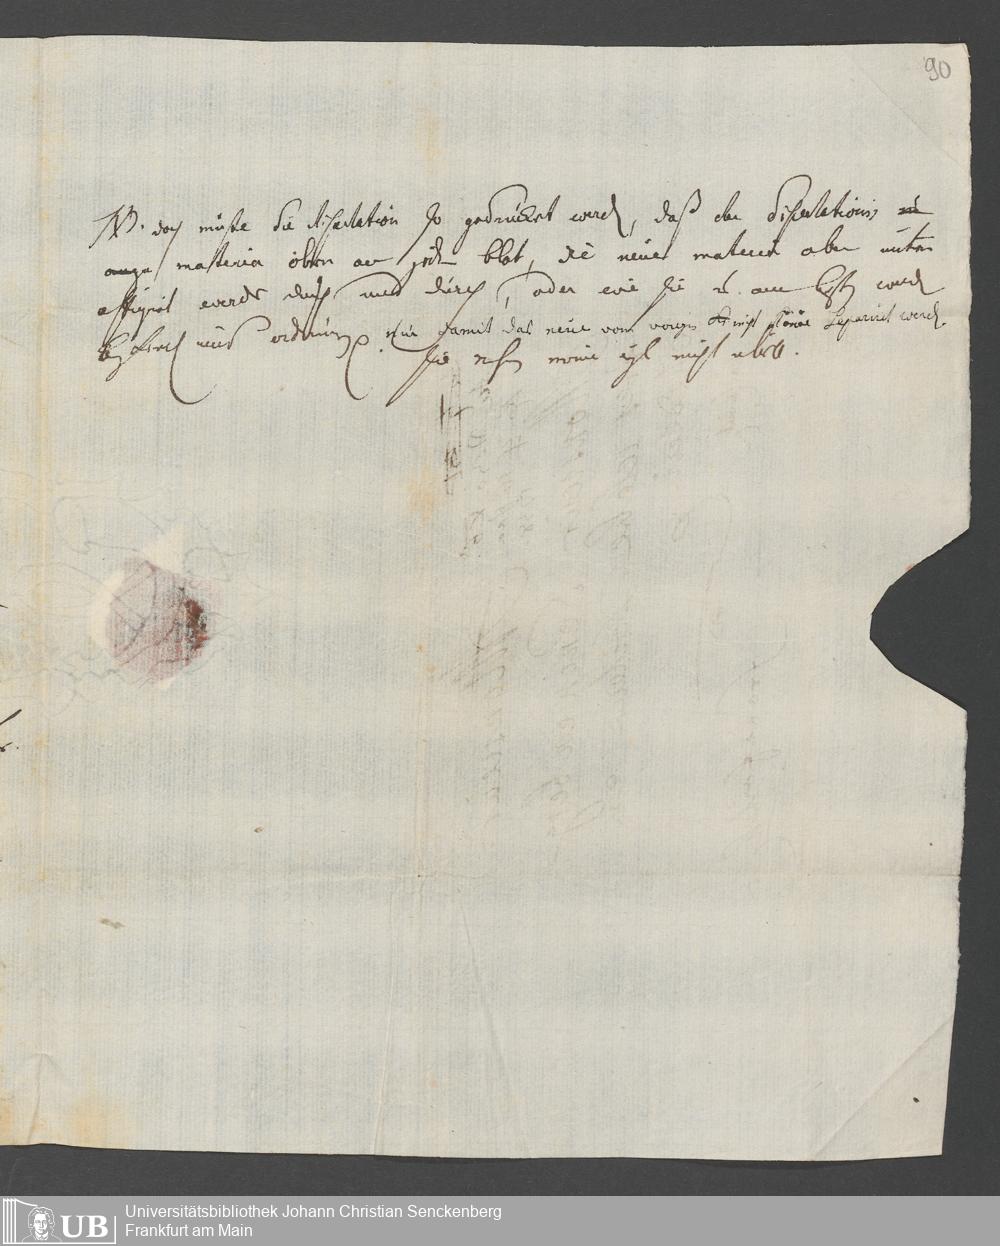 90
NB. doch müste die dissertation so gedruckt werden, daß der dissertationis
materia oben an jedem blat, die neue materia aber unten
affigirt werde durch und durch, oder wie sie es am besten werden
und ordnung nur damit das neue vom vorigen könne separirt werden.
sie nehmen meine eyl nicht übel.
UB
Universitätsbibliothek Johann Christian Senckenberg
Frankfurt am Main